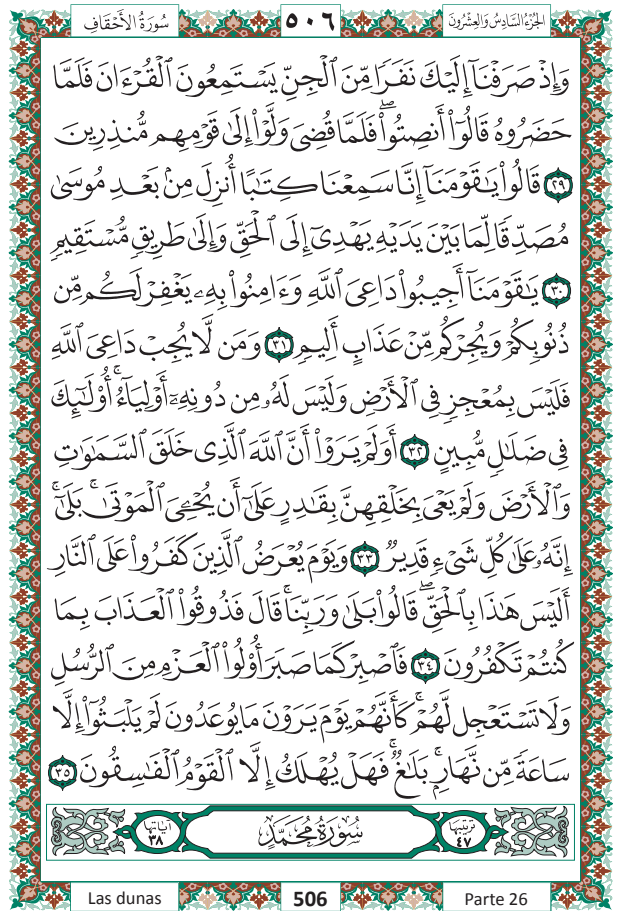 سُورَةُ الْأَحْقَافِ ٥٠٦ الجُزْءُ السَّادِسُ وَالعِشْرُونَ
وَإِذْ صَرَفْنَآ إِلَيْكَ نَفَرًا مِّنَ ٱلْجِنِّ يَسْتَمِعُونَ ٱلْقُرْءَانَ فَلَمَّا
حَضَرُوهُ قَالُوٓا۟ أَنصِتُوا۟ ۖ فَلَمَّا قُضِىَ وَلَّوْا۟ إِلَىٰ قَوْمِهِم مُّنذِرِينَ
٢٩ قَالُوا۟ يَـٰقَوْمَنَآ إِنَّا سَمِعْنَا كِتَـٰبًا أُنزِلَ مِنۢ بَعْدِ مُوسَىٰ
مُصَدِّقًا لِّمَا بَيْنَ يَدَيْهِ يَهْدِىٓ إِلَى ٱلْحَقِّ وَإِلَىٰ طَرِيقٍ مُّسْتَقِيمٍ
٣٠ يَـٰقَوْمَنَآ أَجِيبُوا۟ دَاعِىَ ٱللَّهِ وَءَامِنُوا۟ بِهِۦ يَغْفِرْ لَكُم مِّن
ذُنُوبِكُمْ وَيُجِرْكُم مِّنْ عَذَابٍ أَلِيمٍ ٣١ وَمَن لَّا يُجِبْ دَاعِىَ ٱللَّهِ
فَلَيْسَ بِمُعْجِزٍ فِى ٱلْأَرْضِ وَلَيْسَ لَهُۥ مِن دُونِهِۦٓ أَوْلِيَآءُ ۚ أُو۟لَـٰٓئِكَ
فِى ضَلَـٰلٍ مُّبِينٍ ٣٢ أَوَلَمْ يَرَوْا۟ أَنَّ ٱللَّهَ ٱلَّذِى خَلَقَ ٱلسَّمَـٰوَٰتِ
وَٱلْأَرْضَ وَلَمْ يَعْىَ بِخَلْقِهِنَّ بِقَـٰدِرٍ عَلَىٰٓ أَن يُحْـِۧىَ ٱلْمَوْتَىٰ ۚ بَلَىٰٓ
إِنَّهُۥ عَلَىٰ كُلِّ شَىْءٍ قَدِيرٌ ٣٣ وَيَوْمَ يُعْرَضُ ٱلَّذِينَ كَفَرُوا۟ عَلَى ٱلنَّارِ
أَلَيْسَ هَـٰذَا بِٱلْحَقِّ ۖ قَالُوا۟ بَلَىٰ وَرَبِّنَا ۚ قَالَ فَذُوقُوا۟ ٱلْعَذَابَ بِمَا
كُنتُمْ تَكْفُرُونَ ٣٤ فَٱصْبِرْ كَمَا صَبَرَ أُو۟لُوا۟ ٱلْعَزْمِ مِنَ ٱلرُّسُلِ
وَلَا تَسْتَعْجِل لَّهُمْ ۚ كَأَنَّهُمْ يَوْمَ يَرَوْنَ مَا يُوعَدُونَ لَمْ يَلْبَثُوٓا۟ إِلَّا
سَاعَةً مِّن نَّهَارٍۭ ۚ بَلَـٰغٌ ۚ فَهَلْ يُهْلَكُ إِلَّا ٱلْقَوْمُ ٱلْفَـٰسِقُونَ ٣٥
ترتيبها ٤٧ سُورَةُ مُحَمَّدٍ آياتها ٣٨
Las dunas 506 Parte 26